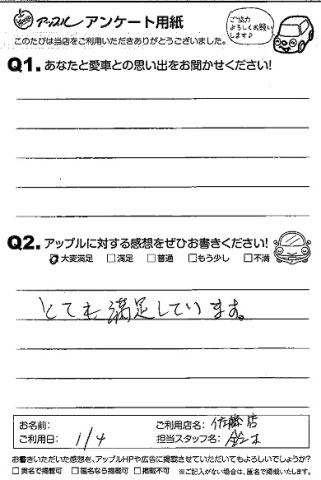 アップル アンケート用紙
このたびは当店をご利用いただきありがとうございました。
ご協力
よろしくお願い
します♪
Q1. あなたと愛車との思い出をお聞かせください!
Q2. アップルに対する感想をぜひお書きください!
☑大変満足 □満足 □普通 □もう少し □不満
とても満足しています。
お名前:
ご利用店名: 佐藤店
ご利用日: 1/4
担当スタッフ名: 鈴木
お書きいただいた感想を、アップルHPや広告に掲載させていただいてもよろしいでしょうか?
□実名で掲載可 □匿名なら掲載可 □掲載不可 ※ご記入がない場合は、匿名で掲載いたします。